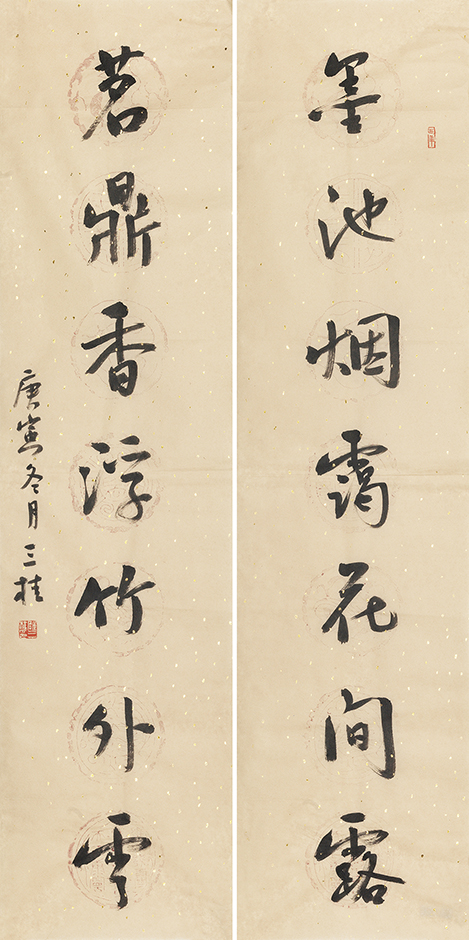 墨池烟霭花间露
茗鼎香浮竹外雲
庚寅冬月三桂